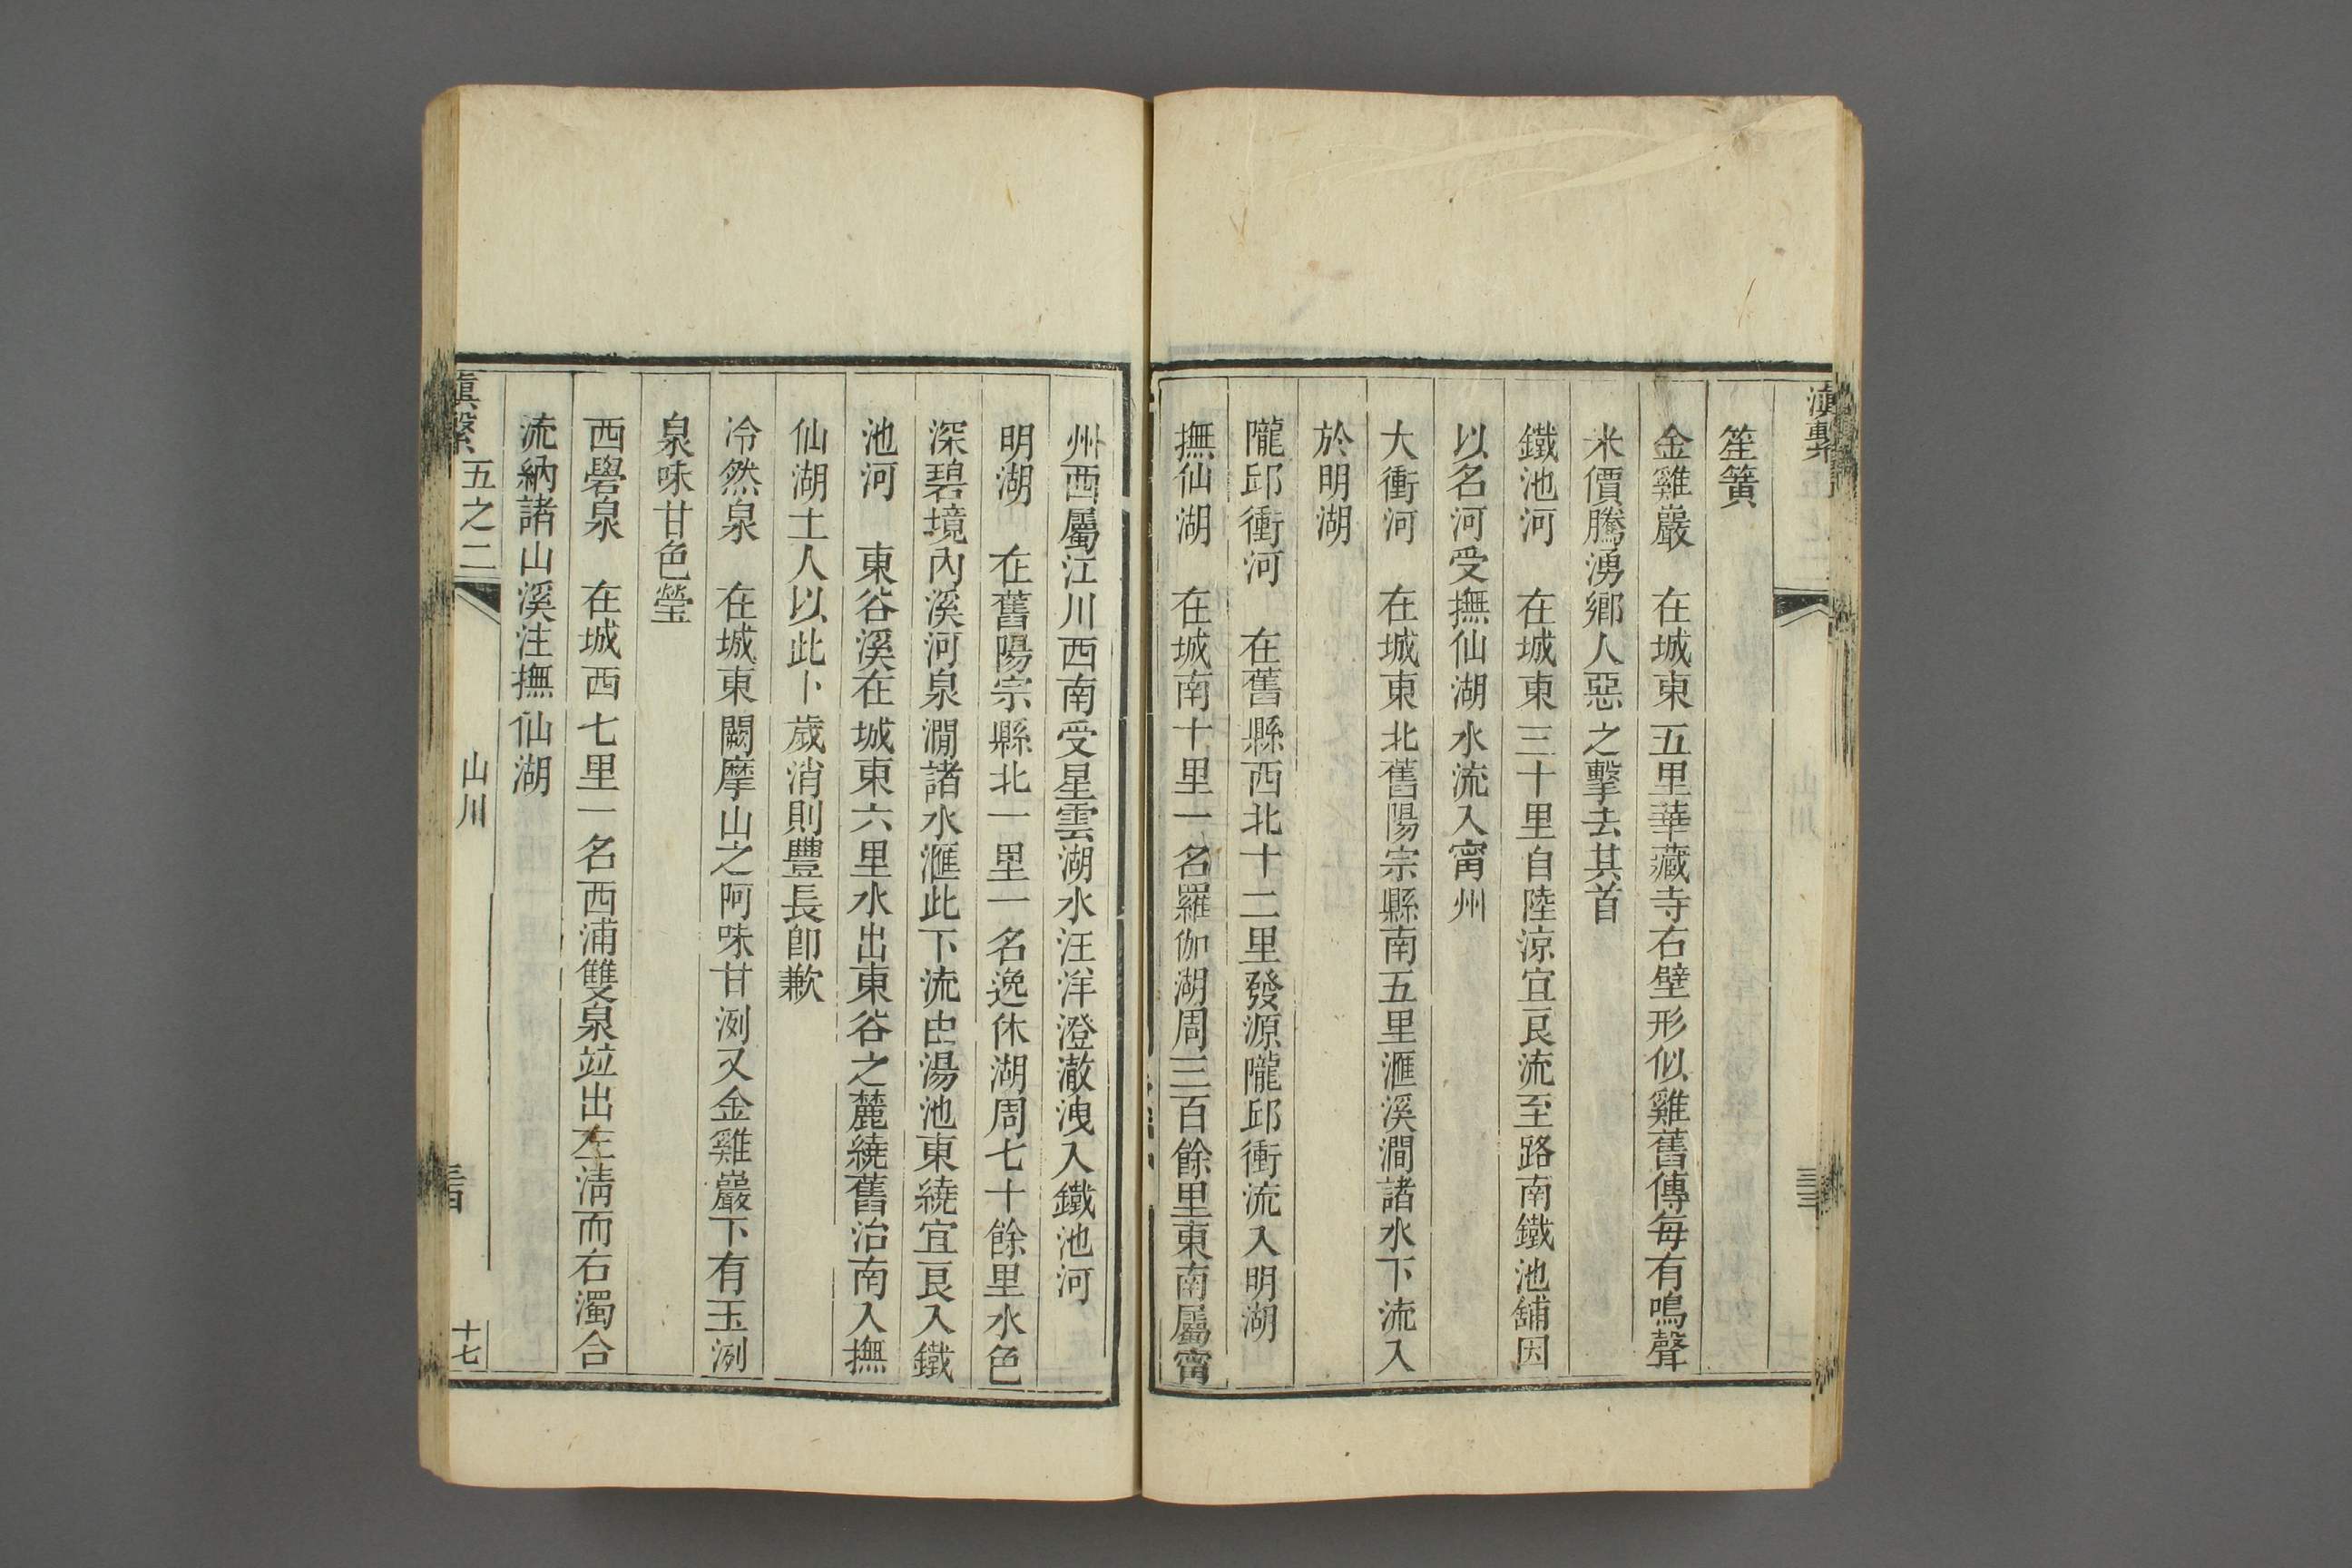 笙簧
金雞巖　在城東五里華藏寺右壁形似雞舊傳每有鳴聲
米價騰湧鄉人惡之擊去其首
鐵池河　在城東三十里自陸涼宜良流至路南鐵池舖因
以名河受撫仙湖水流入甯州
大衝河　在城東北舊陽宗縣南五里滙溪澗諸水下流入
於明湖
隴邱衝河　在舊縣西北十二里發源隴邱衝流入明湖
撫仙湖　在城南十里一名羅伽湖周三百餘里東南屬甯
州西屬江川西南受星雲湖水汪洋澄澈洩入鐵池河
明湖　在舊陽宗縣北一里一名逸休湖周七十餘里水色
深碧境內溪河泉澗諸水滙此下流由湯池東繞宜良入鐵
池河　東谷溪在城東六里水出東谷之麓繞舊治南入撫
仙湖土人以此卜歲消則豐長卽歉
冷然泉　在城東闕摩山之阿味甘洌又金雞巖下有玉洌
泉味甘色瑩
西礐泉　在城西七里一名西浦雙泉竝出左淸而右濁合
流納諸山溪注撫仙湖
滇繫　五之二　山川　十七